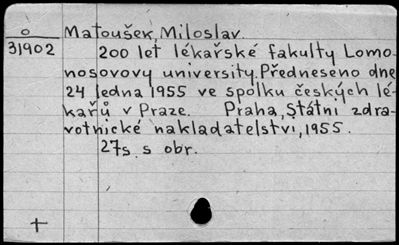 o Matoušek, Miloslav.
31902 200 let lékařské fakulty Lomo-
nosovovy university. Předneseno dne
24 ledna 1955 ve spolku českých lé-
kařů v Praze. Praha, Státní zdra-
votnické nakladatelství, 1955.
27s. s obr.
+